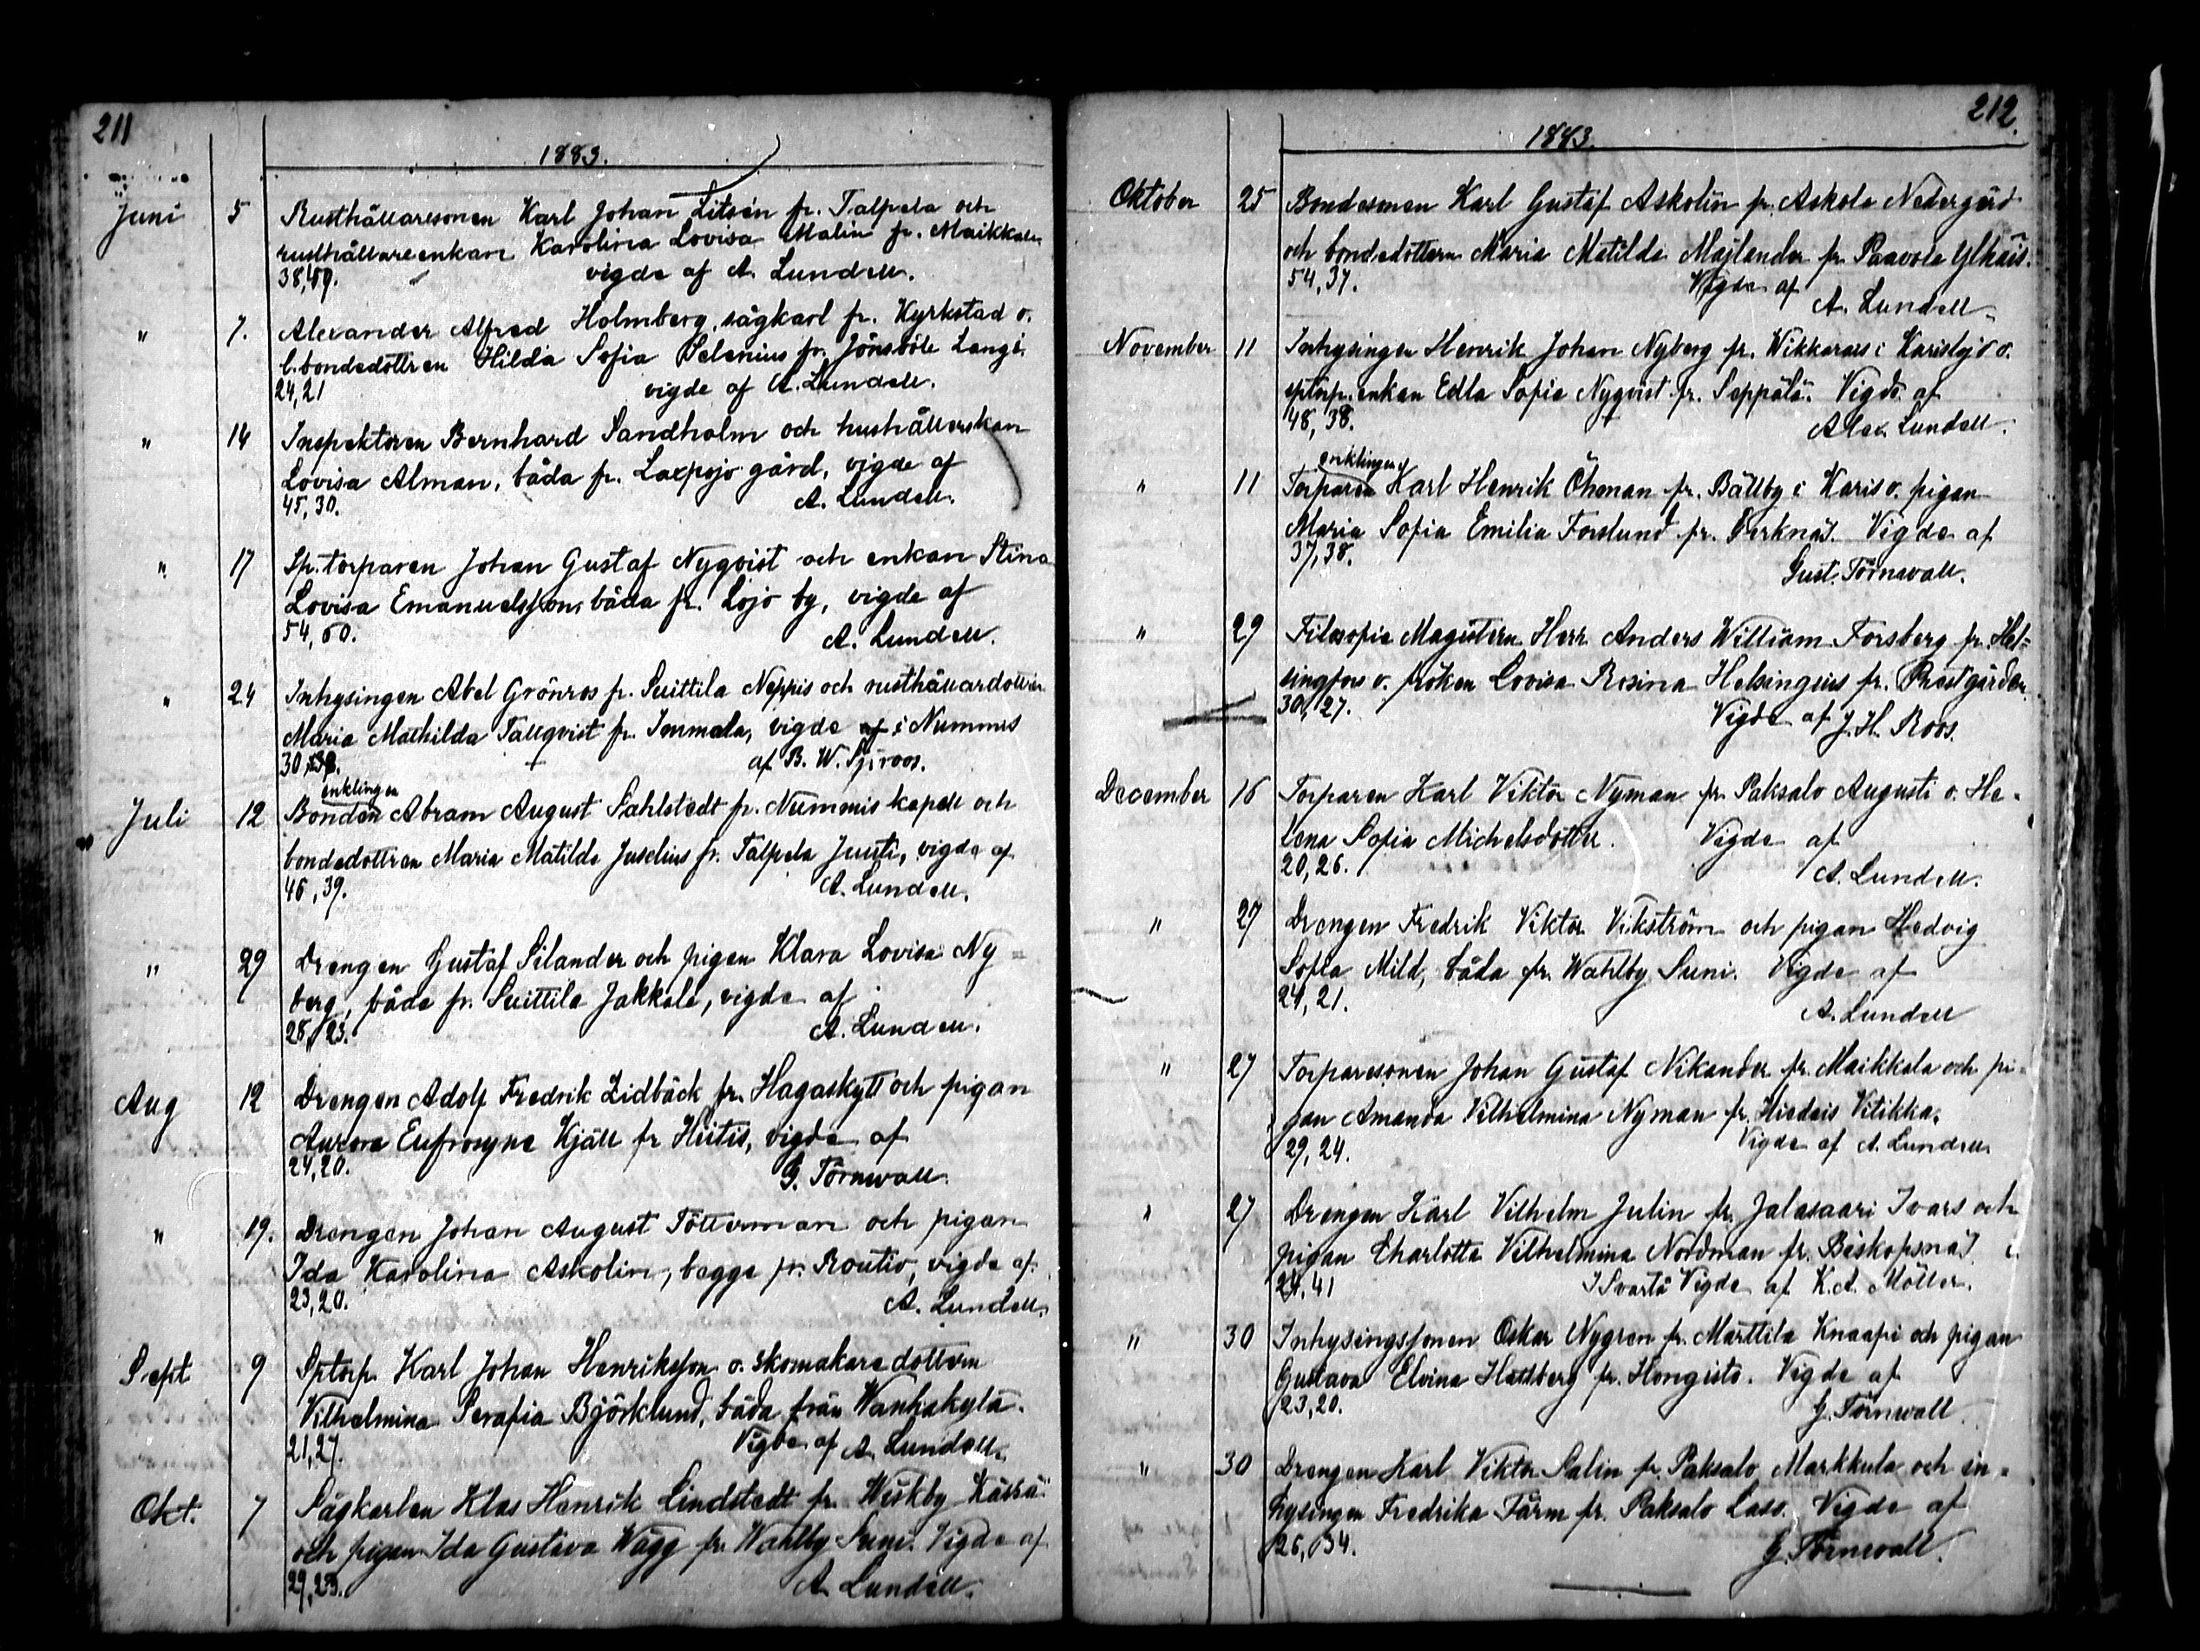 211
1883.
Juni 5 Rusthållaresonen Karl Johan Litsén fr. Talpela och
rusthållareenkan Karolina Lovisa Malin fr. Maikkala
38, 49. vigde af A. Lundell.
" 7. Alexander Alfred Holmberg, sågkarl fr. Kyrkstad o.
l. bondedottren Hilda Sofia Selenius fr. Jönsböle Langi.
24, 21 vigde af A. Lundell.
" 14 Inspektoren Bernhard Sandholm och hushållerskan
Lovisa Alman, båda fr. Laxpojo gård, vigde af
45, 30. A. Lundell.
" 17 Sp. torparen Johan Gustaf Nyqvist och enkan Stina
Lovisa Emanuelsson, båda fr. Lojo by, vigde af
54, 60. A. Lundell.
" 24 Inhysingen Abel Grönros fr. Suittila Neppis och rusthållardottren
Maria Mathilda Tallqvist fr. Immola, vigde af i Nummis
30, af B. W. Sjöroos.
enklingen
Juli 12 Bonden Abram August Sahlstedt fr. Nummis kapell och
bondedottren Maria Matilda Juselius fr. Talpela Juuti, vigde af
46, 39. A. Lundell.
" 29 Drengen Gustaf Silander och pigan Klara Lovisa Ny=
berg, båda fr. Suittila Jakkala, vigde af
28, 23. A. Lundell.
Aug 12 Drengen Adolf Fredrik Lidbäck fr. Hagaskytt och pigan
Aurora Eufrosyne Kjäll fr Hiitis, vigde af
24, 20. G. Törnwall.
" 19. Drengen Johan August Tötterman och pigan
Ida Karolina Askolin, begge fr. Routio, vigde af
23, 20. A. Lundell.
Sept 9 Sptorp. Karl Johan Henriksson o. skomakaredottern
Vilhelmina Serafia Björklund, båda från Wanhakylä.
21, 27. Vigde af A. Lundell.
Okt. 7 Sågkarlen Klas Henrik Lindstedt fr. Wiskby Kärrä
och pigan Ida Gustava Wägg fr. Wahlby Suni. Vigde af
29, 23. A. Lundell.
212.
1883.
Oktober 25 Bondesonen Karl Gustaf Askolin fr. Askola Nedergård
och bondedottern Maria Matilda Majlander fr. Paavola Ylhäis.
54, 37. Vigde af
A. Lundell.
November 11 Inhysingen Henrik Johan Nyberg fr. Wikkaraus i Karislojo o.
sptorp. enkan Edla Sofia Nyqvist fr. Seppälä. Vigde af
48, 38. Alex. Lundell.
enklingen
" 11 Torparen Karl Henrik Öhman fr. Bällby i Karis o. pigan
Maria Sofia Emilia Forslund fr. Gerknäs. Vigde af
37, 38. Gust. Törnwall.
" 29 Filosofie Magistern Herr Anders William Forsberg fr. Hel=
singfors o. fröken Lovisa Rosina Helsingius fr. Prestgården
30, 27. Vigde af J. H. Roos.
December 16 Torparen Karl Viktor Nyman fr. Paksalo Augusti o. He=
lena Sofia Michelsdotter. Vigde af
20, 26. A. Lundell.
" 27 Drengen Fredrik Viktor Vikström och pigan Hedvig
Sofia Mild, båda fr. Wahlby Suni. Vigde af
24, 21. A. Lundell
" 27 Torparesonen Johan Gustaf Nikander fr. Maikkala och pi=
gan Amanda Vilhelmina Nyman fr. Hiidais Vitikka.
29, 24. Vigde af A. Lundell
" 27 Drengen Karl Vilhelm Julin fr. Jalasaari Ivars och
pigan Charlotta Vilhelmina Nordman fr. Biskopsnäs i
24, 41 I Svartå Vigde af K. A. Möller.
" 30 Inhysingssonen Oskar Nygren fr. Marttila Knaapi och pigan
Gustava Elvina Hallberg fr. Hongisto. Vigde af
23, 20. G. Törnwall
" 30 Drengen Karl Viktor Salin fr. Paksalo Markkula och in=
hysingen Fredrika Färm fr. Paksalo Lass. Vigde af
26, 34. G. Törnwall.